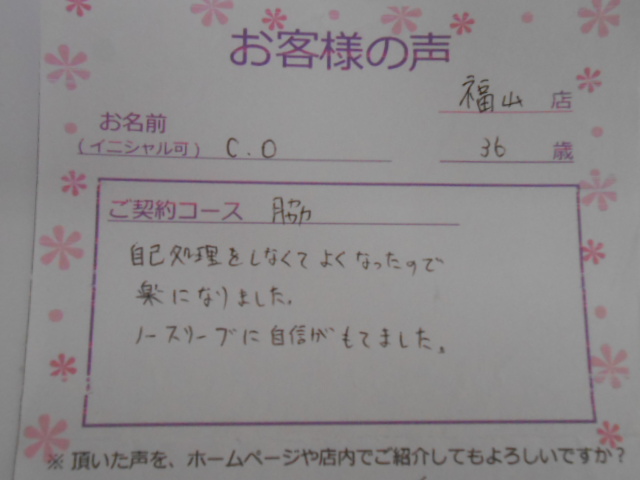 お客様の声
福山 店
お名前
(イニシャル可) C.O 36 歳
ご契約コース 脇
自己処理をしなくてよくなったので
楽になりました。
ノースリーブに自信がもてました。
※頂いた声を、ホームページや店内でご紹介してもよろしいですか?